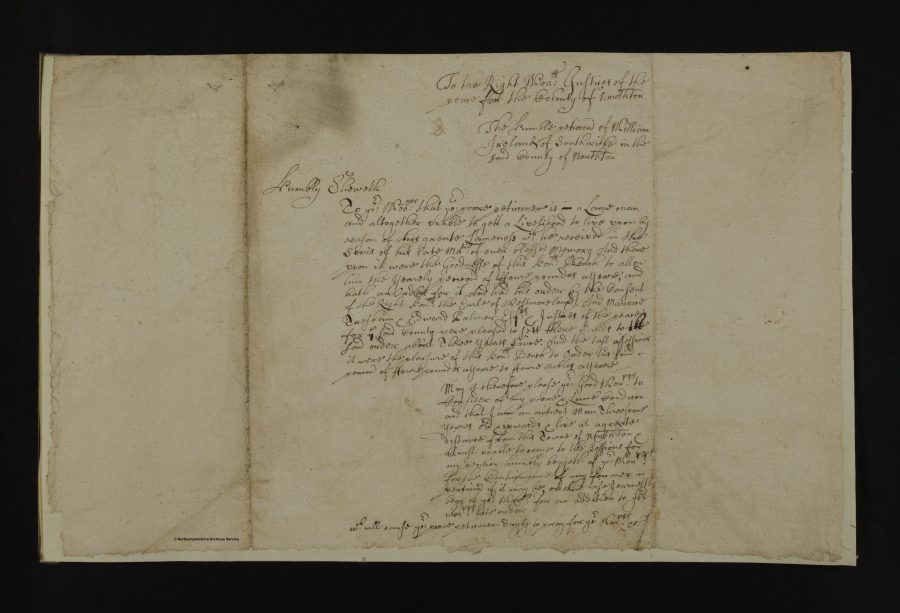 To the Right Worll: Justices of the
peace for the County of Northton
The humble peticion of William
Ireland of Southwicke in the
said County of Northton
Humbly Sheweth
To yor: Worpps that yor: poore peticioner is a Lame man
and altogether unable to gett a Livelihood to live upon by
reason of his greate Lameness wch he received in the
Servis of his Late Matie of ever bless Memory And there
upon it were the Goodnesse of this honble: Bench to allow
him the Yearely pencion of fowre poundes a Yeare, and
hath an Order for it, And had his order by the Consent
of the Right honble the Earle of Westmoreland And
Tresham & Edward Palmer Esqrs Justices of the peace
for ye said County were pleased to sett there hands to the
said order about Three Yeares since And the last assessions
it were the pleasure of this honble: Bench to Order his said
pencion of fowre poundes a Yeare to fowre Nobles a Yeare
May it therefore please yor good Honpps to
Consider of my poore & Lame Condicon
and that I am an antient Man Threescore
Yeares old & upwards & live at a greate
distance from the Towne of Northton
almost unable to come to the Sessions for
my pention humbly beggeth of yor Worpps
for the Continuance of my former
pention if it may be, or else
begg of yor for an addition to
late order
wch will cause yor: poore peticioner dayly to pray for yor Worpps &c
© Northamptonshire Archives Service